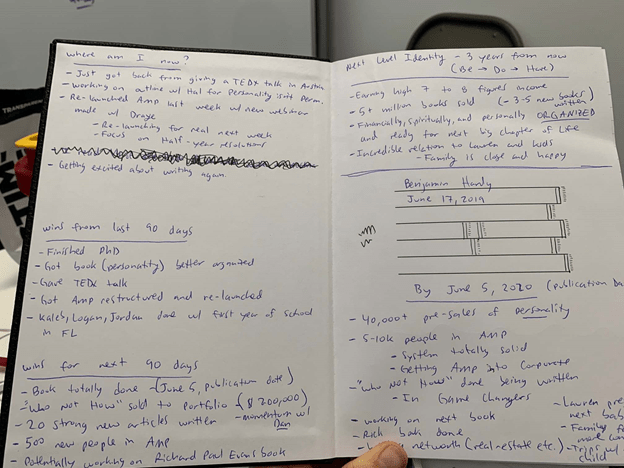 where am I now?
- Just got back from giving a TEDx talk in Austria
- working on outline w/ Hal for Personality isn't Perm.
- Re-launched Amp last week w/ new webinar
made w/ Draye
- Re-launching for real next week
- Focus on Half-year resolutions
- Getting excited about writing again.
wins from last 90 days
- Finished PhD
- Got book (personality) better organized
- Gave TEDx talk
- Got Amp restructured and re-launched
- Kaleb, Logan, Jordan done w/ first year of school
in FL
wins for next 90 days
- Book totally done - (June 5, publication date)
- "Who Not How" sold to Portfolio - ($200,000)
- 20 strong new articles written - momentum w/
Dan
- 500 new people in Amp
- Potentially working on Richard Paul Evans book
Next Level Identity - 3 years from now
(Be → Do → Have)
- Earning high 7 to 8 figures income
- 5+ million books sold (- 3-5 new books)
written
- Financially, spiritually, and personally ORGANIZED
and ready for next big chapter of life
- Incredible relation to Lauren and kids
- Family is close and happy
Benjamin Hardy
June 17, 2019
By June 5, 2020 (publication Da
- 40,000+ pre-sales of personality
- 5-10k people in AMP
- System totally solid
- Getting Amp into Corporate
- "Who Not How" done being written
- In Game Changers
- working on next book
- Rich book done
networth (real-estate etc.)
- Lauren pre
next bab
- Family f
more con
- Trips w/
child
TRANSPAR